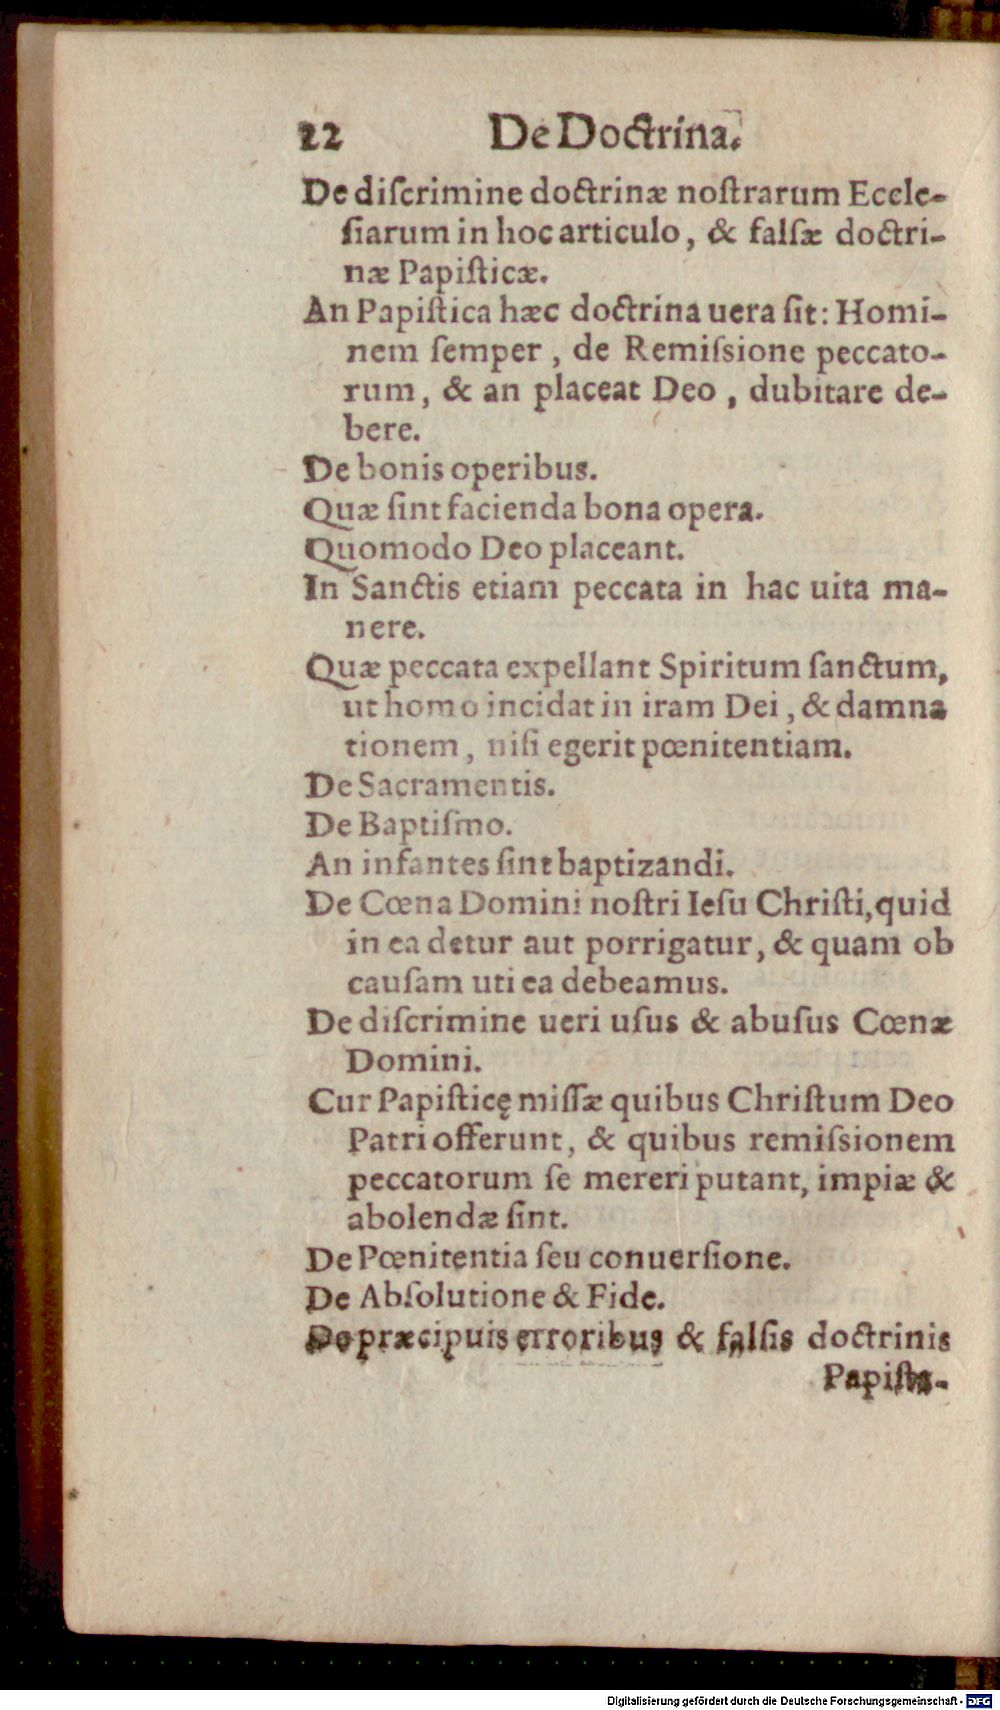 22 De Doctrina.
De diſcrimine doctrinæ noſtrarum Eccle-
ſiarum in hoc articulo, & falſæ doctri-
næ Papiſticæ.
An Papiſtica hæc doctrina uera ſit: Homi-
nem ſemper, de Remiſsione peccato-
rum, & an placeat Deo, dubitare de-
bere.
De bonis operibus.
Quæ ſint facienda bona opera.
Quomodo Deo placeant.
In Sanctis etiam peccata in hac uita ma-
nere.
Quæ peccata expellant Spiritum ſanctum,
ut homo incidat in iram Dei, & damna
tionem, niſi egerit pœnitentiam.
De Sacramentis.
De Baptiſmo.
An infantes ſint baptizandi.
De Cœna Domini noſtri Ieſu Chriſti, quid
in ea detur aut porrigatur, & quam ob
cauſam uti ea debeamus.
De diſcrimine ueri uſus & abuſus Cœnæ
Domini.
Cur Papiſticę miſſæ quibus Chriſtum Deo
Patri offerunt, & quibus remiſsionem
peccatorum ſe mereri putant, impiæ &
abolendæ ſint.
De Pœnitentia ſeu conuerſione.
De Abſolutione & Fide.
De præcipuis erroribus & falſis doctrinis
Papiſta-
Digitalisierung gefördert durch die Deutsche Forschungsgemeinschaft - DFG